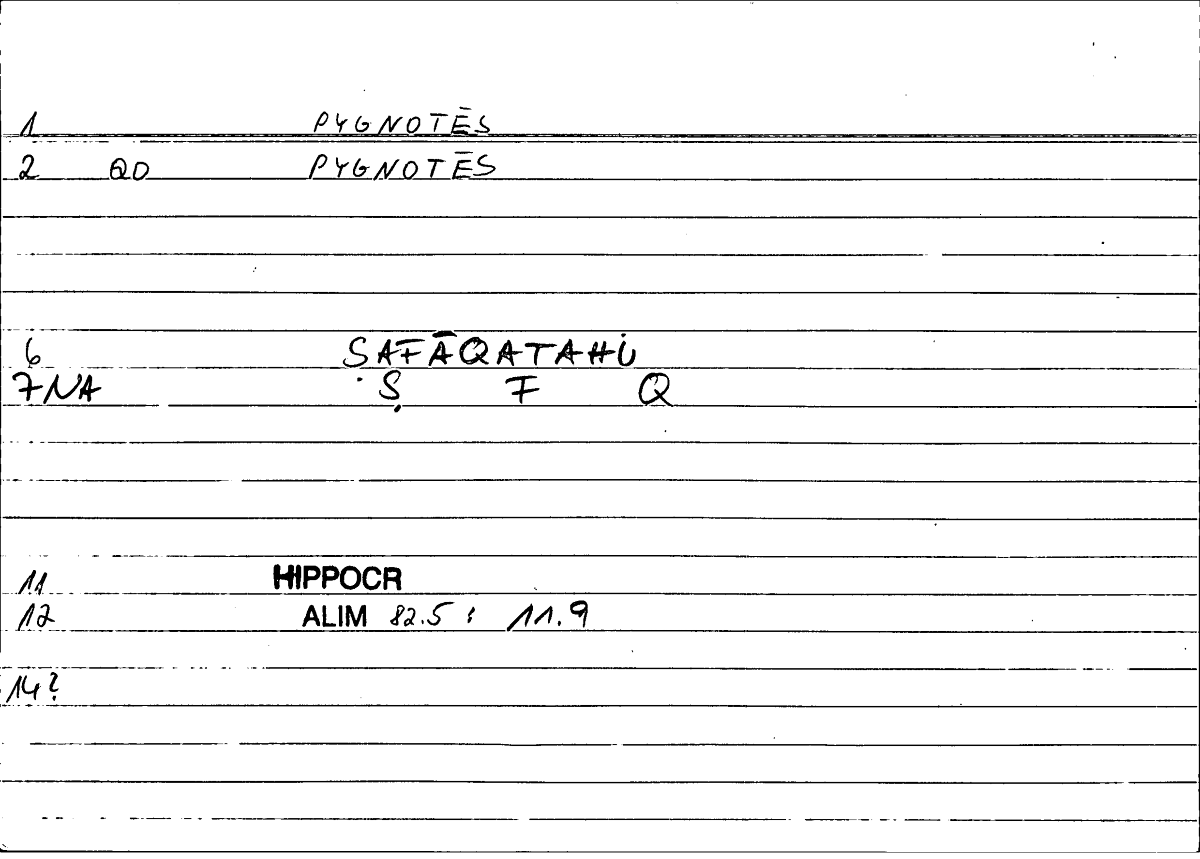 1 PYGNOTĒS
2 QD PYGNOTĒS
6 SAFĀQATAHU̇
7NA Ṣ F Q
11 HIPPOCR
12 ALIM 82.5 : 11.9
14?